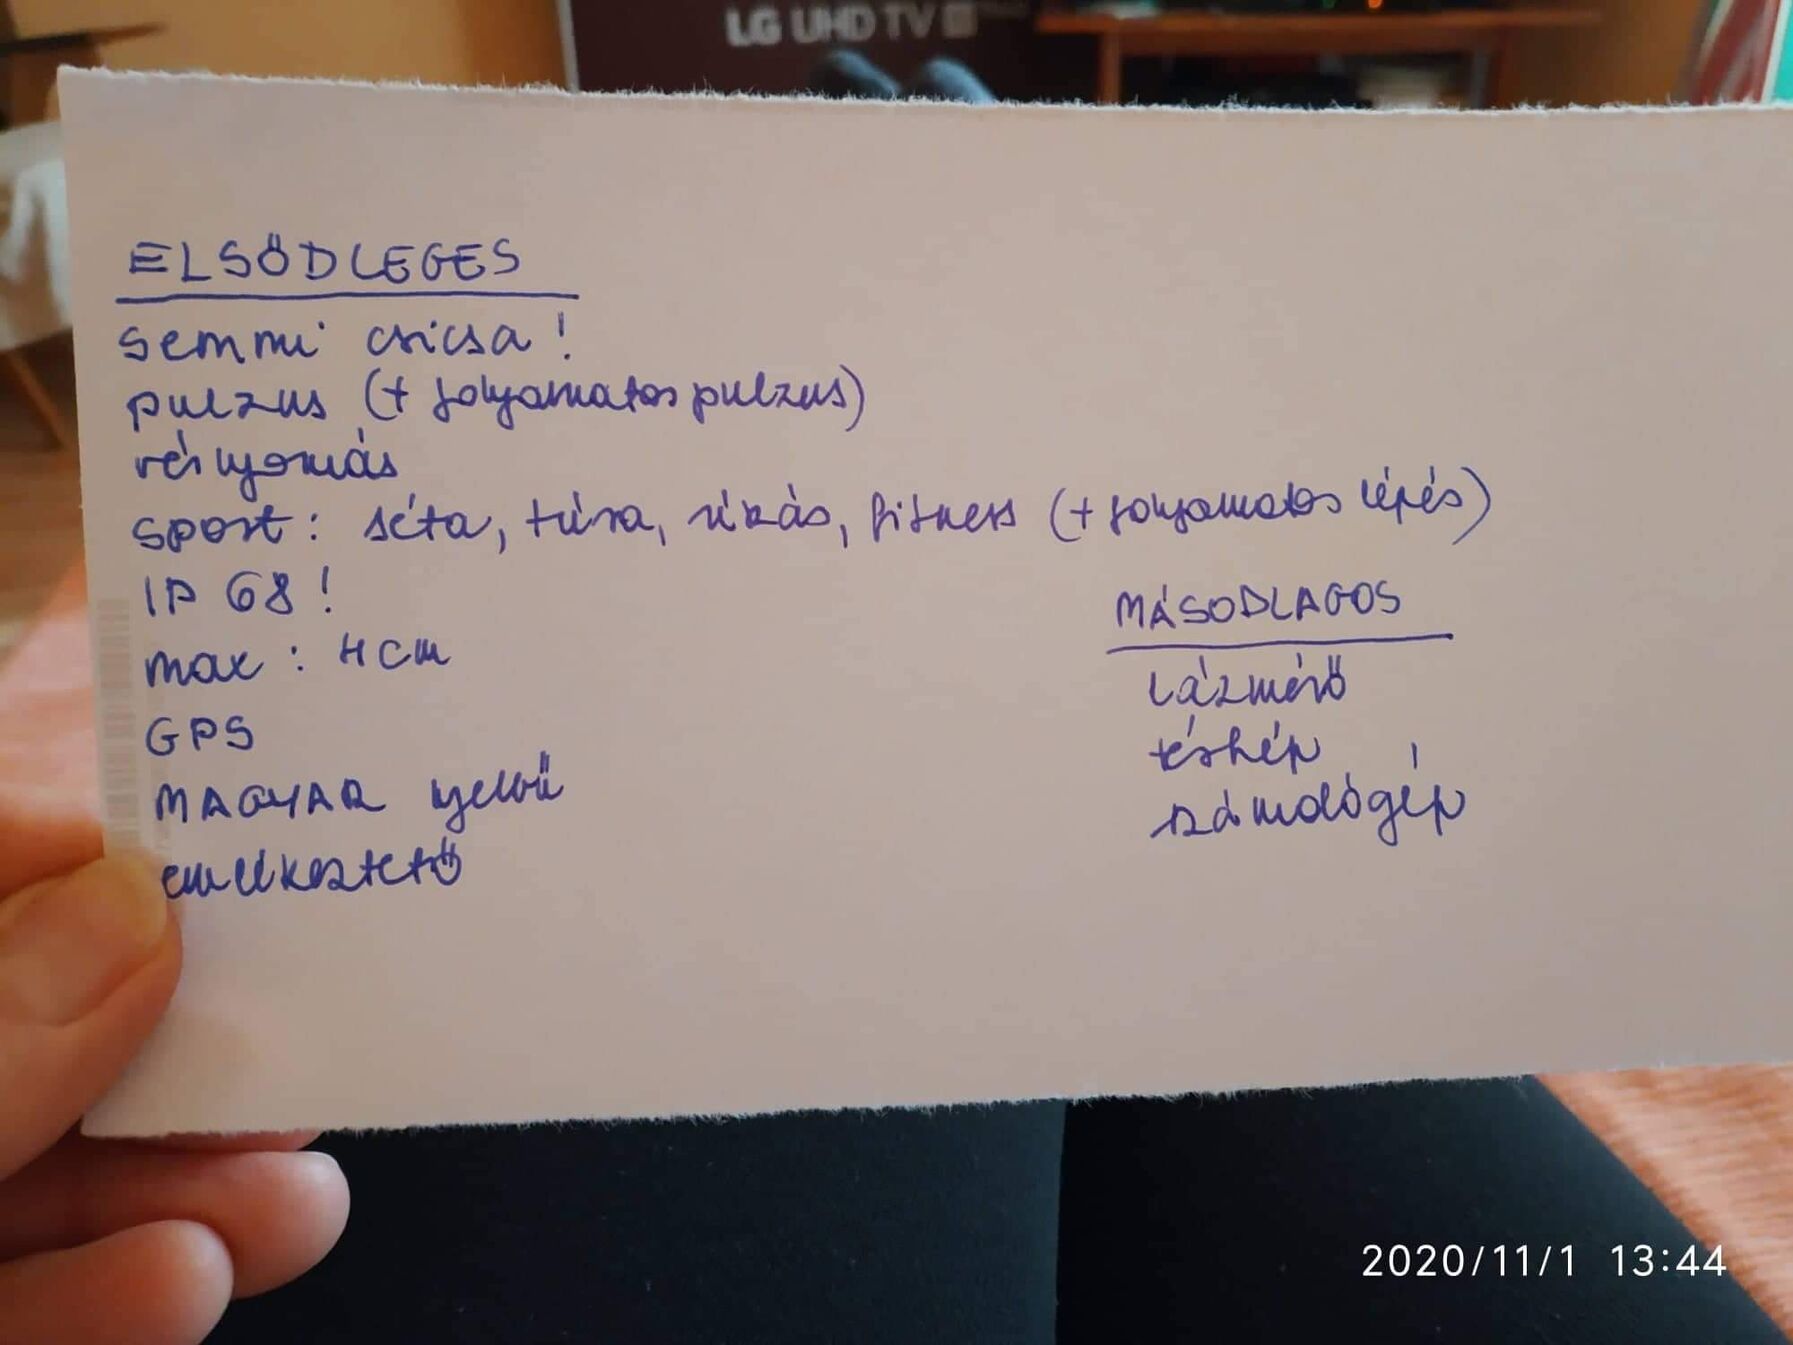 LG UHD TV
ELSŐDLEGES
semmi csicsa!
pulzus (+ folyamatos pulzus)
vérnyomás
sport: séta, túra, úszás, fitness (+ folyamatos lépés)
IP 68!
max: 4 cm
GPS
MAGYAR nyelvű
emlékeztető
MÁSODLAGOS
lázmérő
térkép
számológép
2020/11/1 13:44